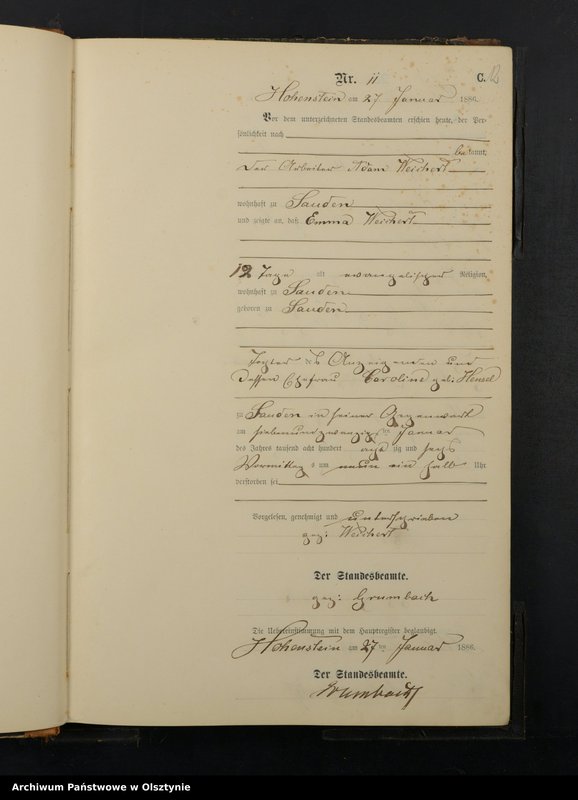 Nr. 11
C. 12
Hohenstein am 27 Januar 1886.
Vor dem unterzeichneten Standesbeamten erschien heute, der Per-
sönlichkeit nach
bekannt,
der Arbeiter Adam Weichert
wohnhaft zu Sauden
und zeigte an, daß Emma Weichert
12 Tage alt evangelischer Religion,
wohnhaft zu Sauden
geboren zu Sauden
Tochter des Anzeigenden und
dessen Ehefrau Caroline geb: Hensel
zu Sauden in seiner Gegenwart
am siebenundzwanzigsten Januar
des Jahres tausend acht hundert achtzig und sechs
Vormittags um neun ein halb Uhr
verstorben sei
Vorgelesen, genehmigt und unterschrieben
gez: Weichert
Der Standesbeamte.
gez: Grumbach
Die Uebereinstimmung mit dem Hauptregister beglaubigt.
Hohenstein am 27ten Januar 1886.
Der Standesbeamte.
Grumbach
Archiwum Państwowe w Olsztynie